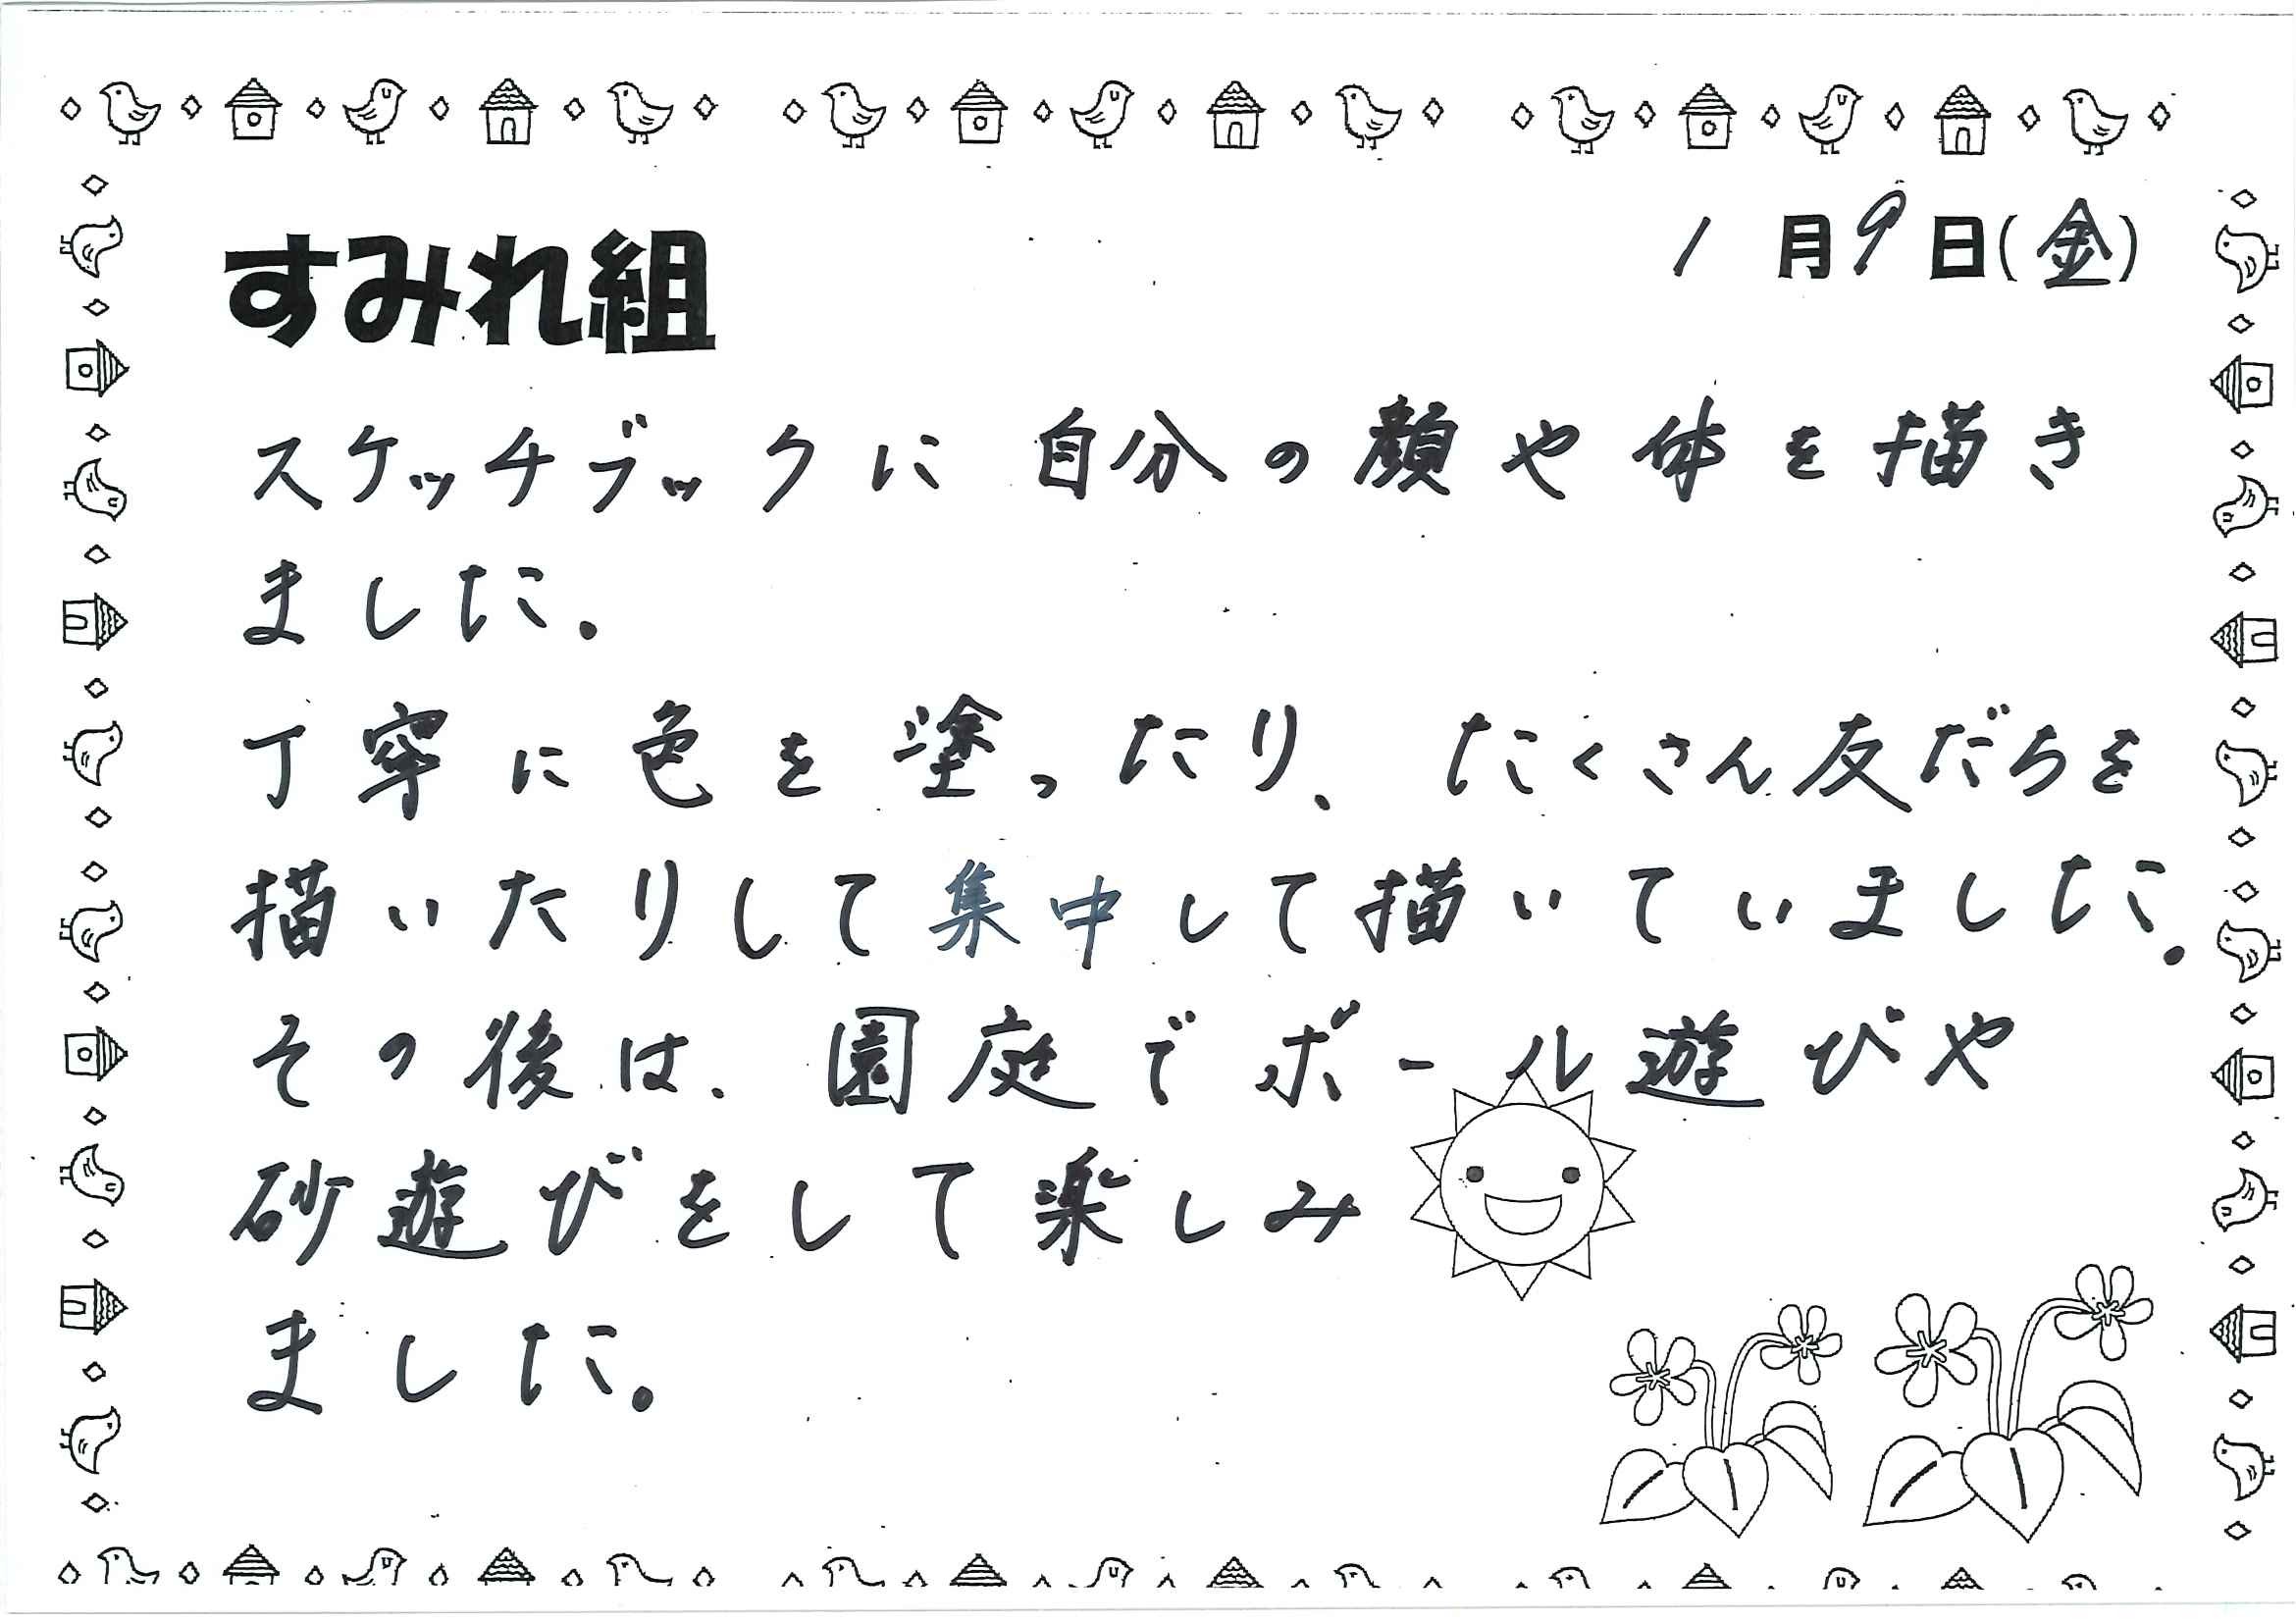 1月9日(金)
すみれ組
スケッチブックに自分の顔や体を描き
ました。
丁寧に色を塗ったり、たくさん友だちを
描いたりして集中して描いていました。
その後は、園庭でボール遊びや
砂遊びをして楽しみ
ました。